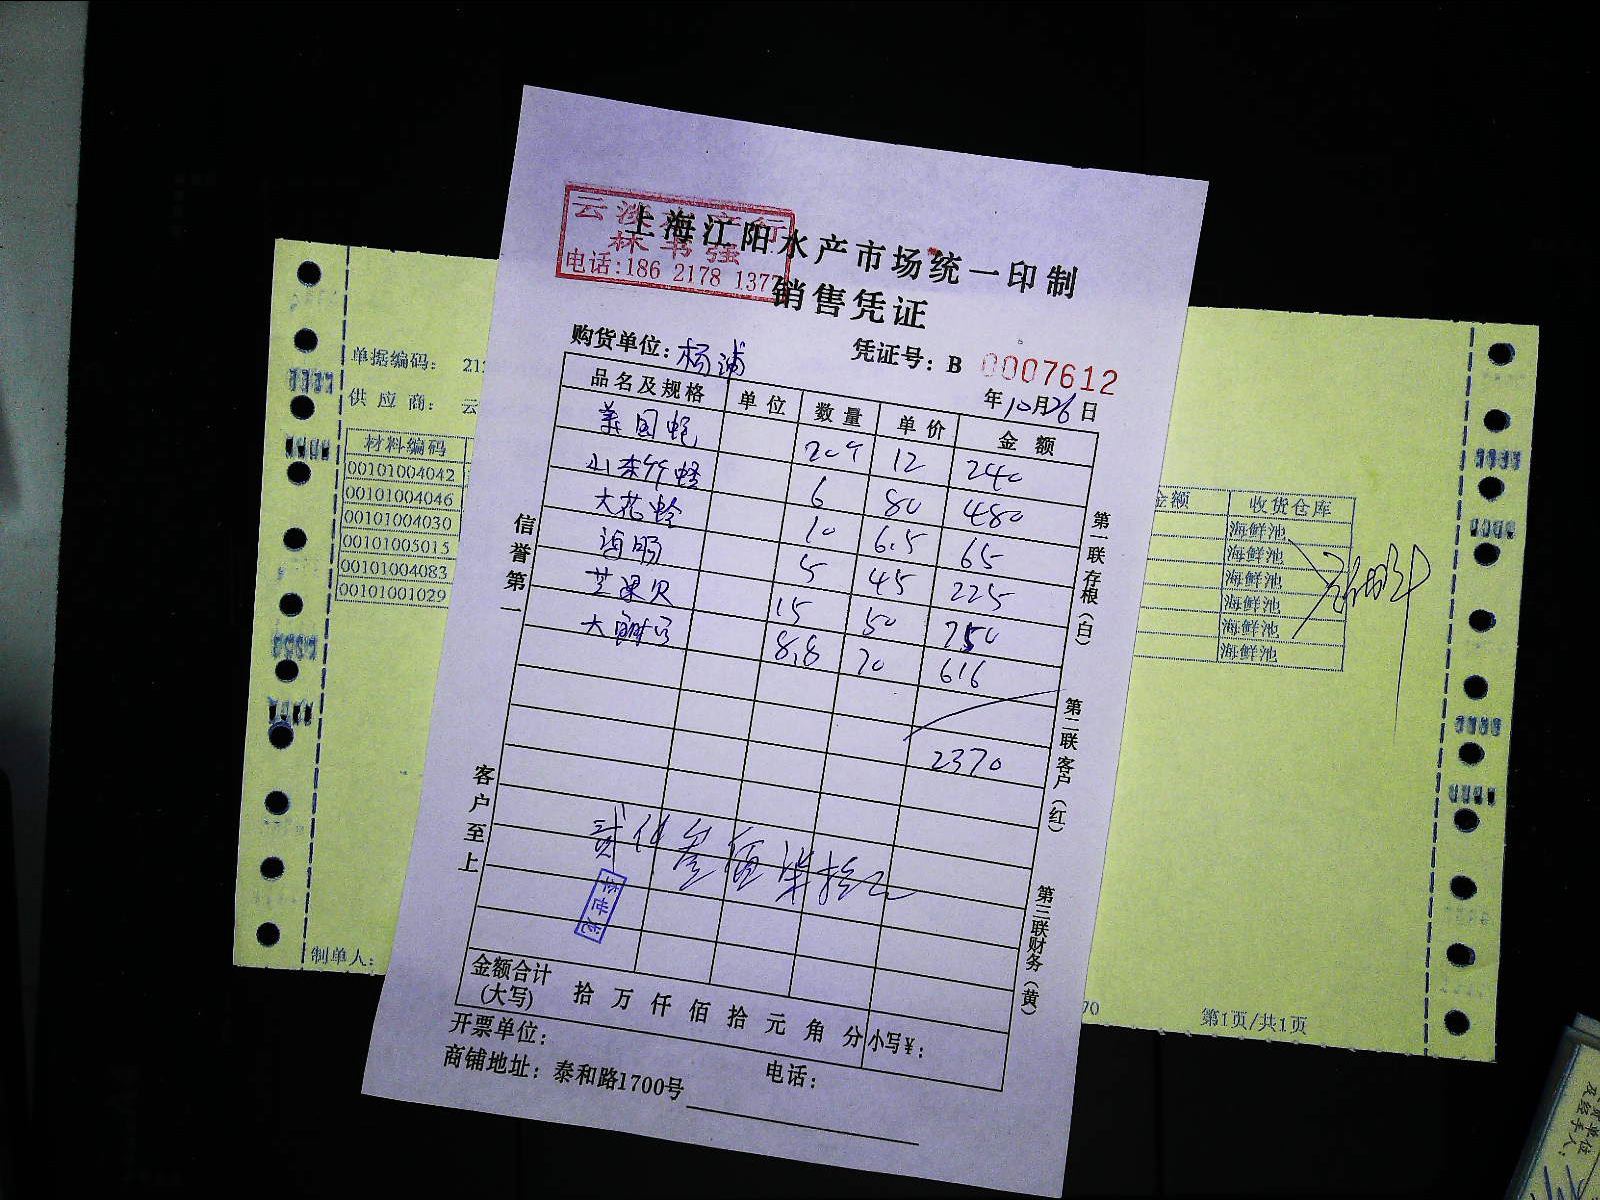 电话:186 2178 1377
上海江阳水产市场统一印制
销售凭证
购货单位: 杨浦
凭证号: B 0007612
年10月26日
品名及规格 单位 数量 单价 金额
美国蚝 20个 12 240
小本竹蛏 6 80 480
大花蛤 10 6.5 65
海肠 5 45 225
芒果贝 15 50 750
大 8.8 70 616
2370
贰仟叁佰柒拾元
金额合计
(大写) 拾 万 仟 佰 拾 元 角 分 小写¥:
开票单位:
电话:
商铺地址: 泰和路1700号
信誉第一
客户至上
第一联存根(白)
第二联客户(红)
第三联财务(黄)
单据编码: 212
供应商: 云
材料编码
00101004042
00101004046
00101004030
00101005015
00101004083
00101001029
制单人:
金额 收货仓库
海鲜池
海鲜池
海鲜池
海鲜池
海鲜池
海鲜池
70
第1页/共1页